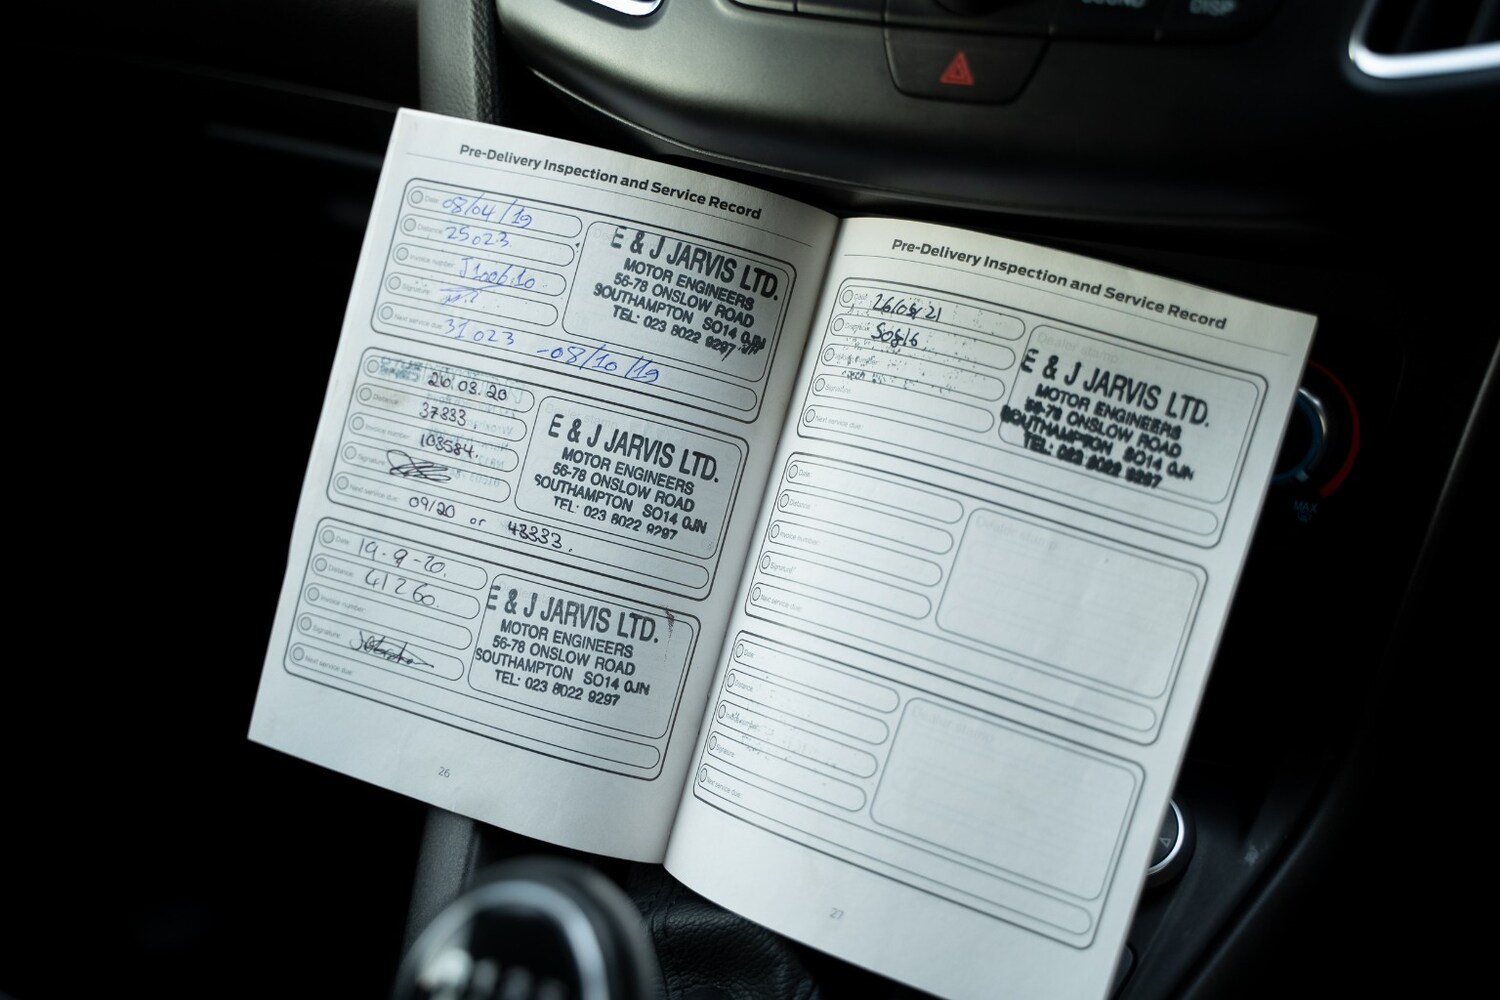 DISP
Pre-Delivery Inspection and Service Record
Date: 08/04/19
Distance: 25023
Invoice number:
Signature:
Next service due: 31023 - 08/10/19
E & J JARVIS LTD.
MOTOR ENGINEERS
56-78 ONSLOW ROAD
SOUTHAMPTON SO14 0JN
TEL: 023 8022 9297
Date: 26.03.20
Distance: 37333
Invoice number: 103584.
Signature:
Next service due: 09/20 or 43333.
E & J JARVIS LTD.
MOTOR ENGINEERS
56-78 ONSLOW ROAD
SOUTHAMPTON SO14 0JN
TEL: 023 8022 9297
Date: 19-9-20.
Distance: 41260.
Invoice number:
Signature:
Next service due:
E & J JARVIS LTD.
MOTOR ENGINEERS
56-78 ONSLOW ROAD
SOUTHAMPTON SO14 0JN
TEL: 023 8022 9297
26
Pre-Delivery Inspection and Service Record
Date: 26/08/21
Distance: 50816
Signature:
Next service due:
Dealer stamp
E & J JARVIS LTD.
MOTOR ENGINEERS
56-78 ONSLOW ROAD
SOUTHAMPTON SO14 0JN
TEL: 023 8022 9297
Date:
Distance:
Invoice number:
Signature:
Next service due:
Dealer stamp
Date:
Distance:
Signature:
Next service due:
Dealer stamp
27
MAX